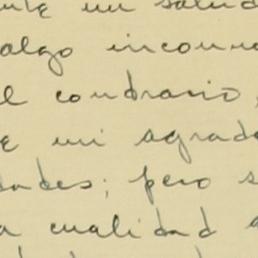 un salud
algo incon
l contrario,
e mi agrad
dades; pero s
a cualidad a